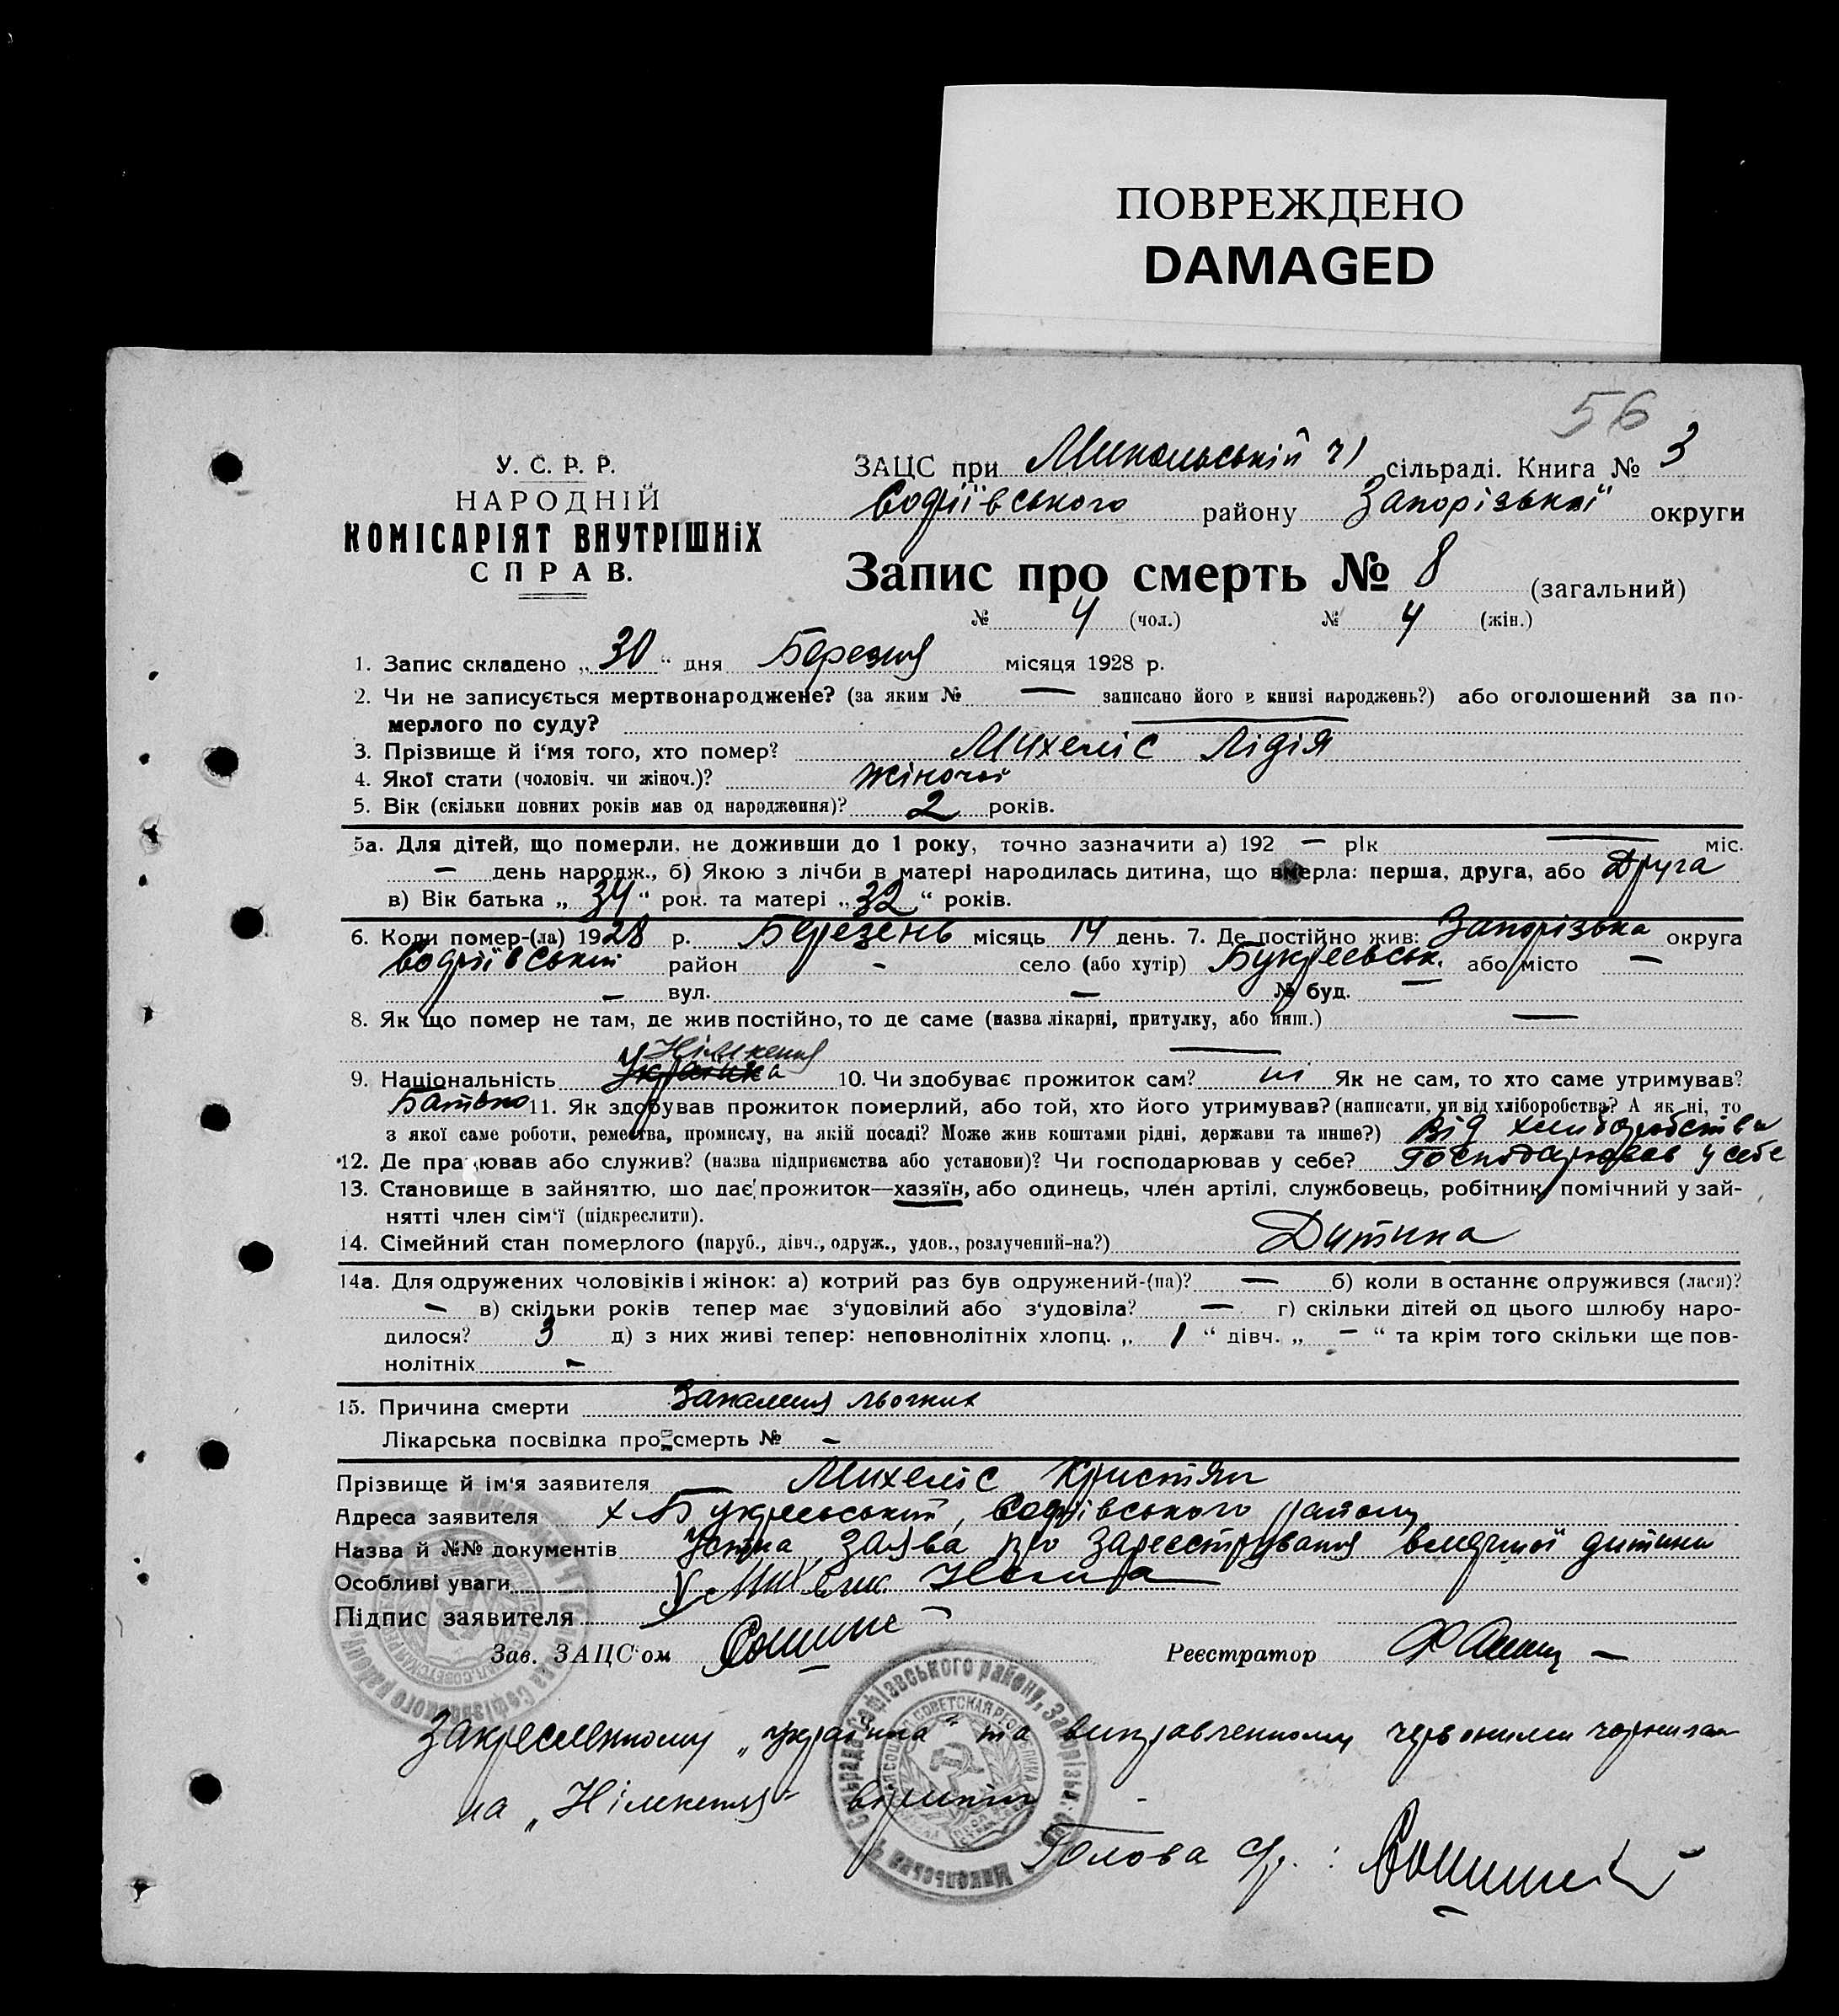 ПОВРЕЖДЕНО
DAMAGED
56
У. С. Р. Р.
НАРОДНІЙ
КОМІСАРІЯТ ВНУТРІШНІХ
СПРАВ.
ЗАЦС при Микольській ч1 сільраді. Книга № 3
Софіївського району Запорізької округи
Запис про смерть № 8 (загальний)
№ 4 (чол.) № 4 (жін.)
1. Запис складено „30“ дня Березня місяця 1928 р.
2. Чи не записується мертвонароджене? (за яким № — записано його в книзі народжень?) або оголошений за по-
мерлого по суду? —
3. Прізвище й і'мя того, хто помер? Михеліс Лідія
4. Якої стати (чоловіч. чи жіноч.)? Жіночої
5. Вік (скільки повних років мав од народження)? 2 років.
5а. Для дітей, що померли, не доживши до 1 року, точно зазначити а) 192 — рік — міс.
— день народж., б) Якою з лічби в матері народилась дитина, що вмерла: перша, друга, або Друга
в) Вік батька „34“ рок. та матері „32“ років.
6. Коли помер-(ла) 1928 р. Березень місяць 14 день. 7. Де постійно жив: Запорізька округа
Софіївський район - село (або хутір) Букреевськ. або місто —
— вул. — № буд. —
8. Як що помер не там, де жив постійно, то де саме (назва лікарні, притулку, або инш.) —
Німкеня —
9. Національність Українка 10. Чи здобуває прожиток сам? ні Як не сам, то хто саме утримував?
Батько 11. Як здобував прожиток померлий, або той, хто його утримував? (написати, чи від хліборобства? А як ні, то
з якої саме роботи, ремества, промислу, на якій посаді? Може жив коштами рідні, держави та инше?) Від хліборобства
12. Де працював або служив? (назва підприємства або установи)? Чи господарював у себе? Господарював у себе
13. Становище в зайняттю, що дає прожиток—хазяїн, або одинець, член артілі, службовець, робітник, помічний у зай-
нятті член сім'ї (підкреслити).
14. Сімейний стан померлого (паруб., дівч., одруж., удов., розлучений-на?) Дитина
14а. Для одружених чоловіків і жінок: а) котрий раз був одружений-(на)? — б) коли в останнє одружився (лася)?
— в) скільки років тепер має з'удовілий або з'удовіла? — г) скільки дітей од цього шлюбу наро-
дилося? 3 д) з них живі тепер: неповнолітніх хлопц. „1“ дівч. „—“ та крім того скільки ще пов-
нолітніх -
15. Причина смерти Запалення льогких
Лікарська посвідка про смерть № -
Прізвище й ім'я заявителя Михеліс Кристян
Адреса заявителя х Букреевський, Софіївського району
Назва й №№ документів Устна заява про зареєстрування вмершої дитини
Особливі уваги
Підпис заявителя
Зав. ЗАЦС'ом Реєстратор
Закресленному „українка“ та виправленному червоними чорнилам
на „Німкеня“ вірити
Голова с/р. :